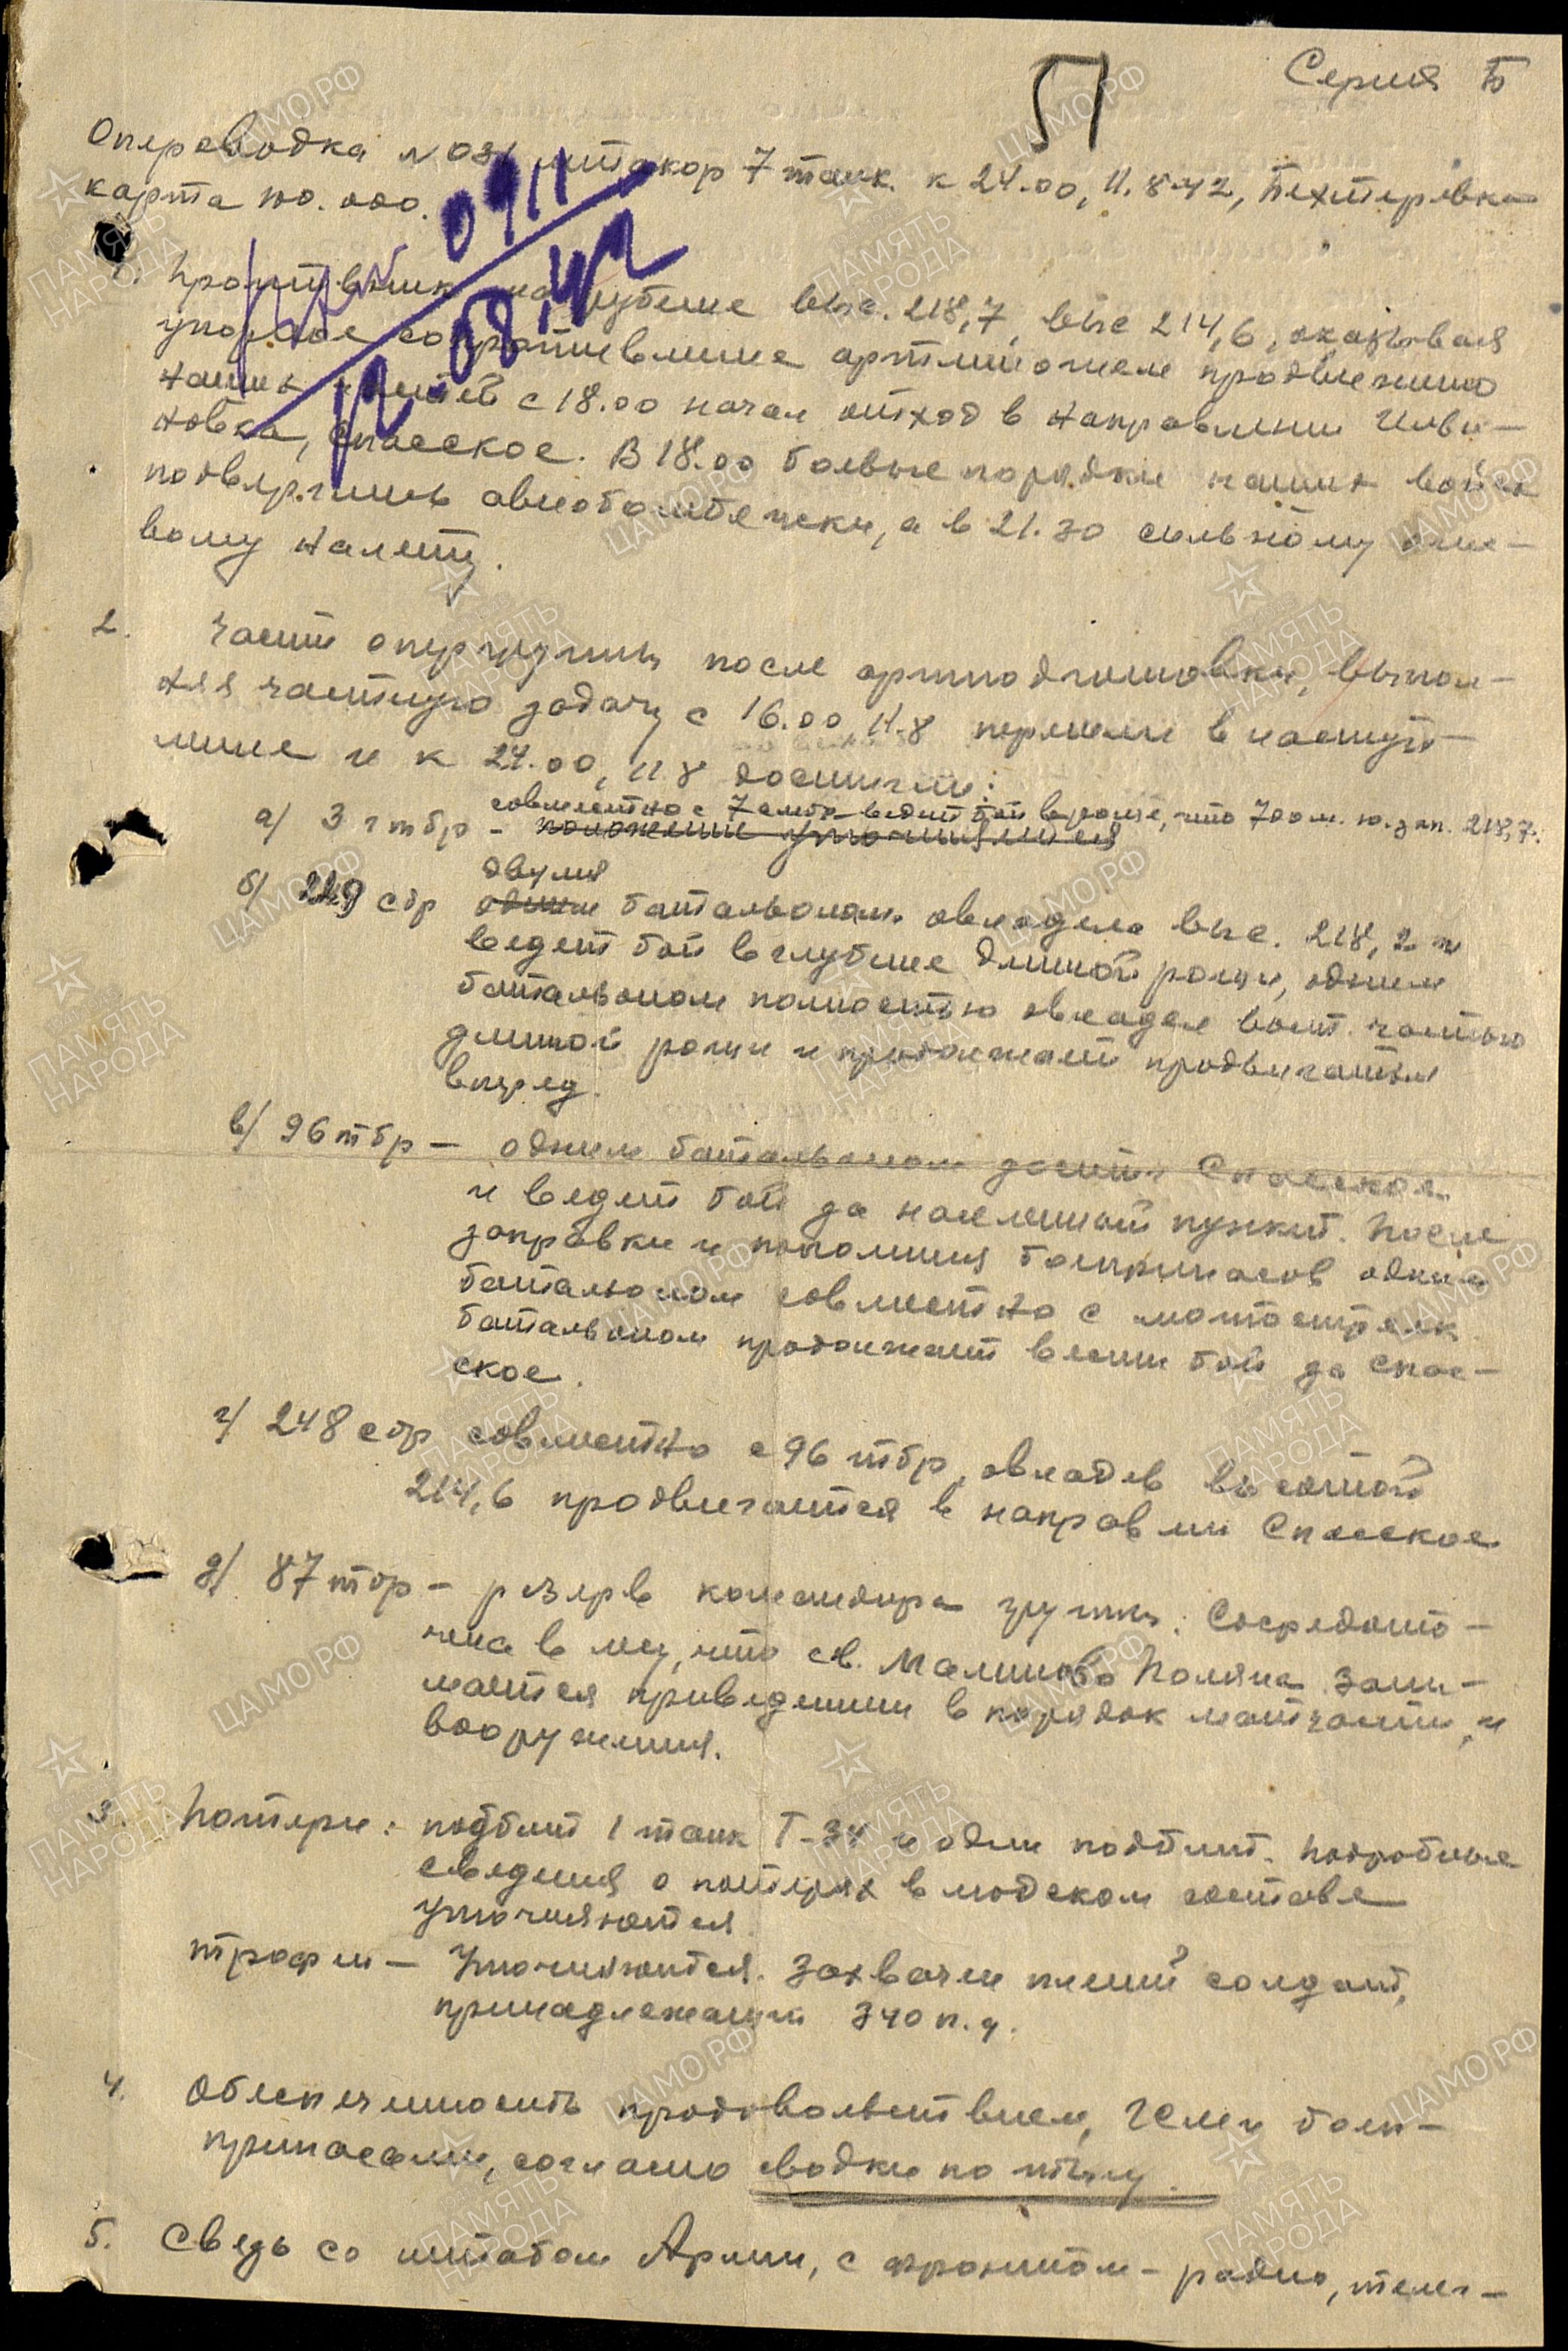 Серия Б
51
Опересводка №031 штакор 7 танк. к 24.00, 11.8.42, Бехтеревка
карта 100.000.
0911
12.08.42
1. Противник на рубеже выс. 218,7, выс 214,6, оказывая
упорное сопротивление артминогнем продвижению
наших частей с 18.00 начал отход в направлении Чиви-
новка, Спасское. В 18.00 боевые порядки наших войск
подверглись авиабомбежки, а в 21.30 сильному огне-
вому налету.
2. Части опергруппы после артподготовки, выпол-
няя частную задачу с 16.00 11.8 перешли в наступ-
ление и к 24.00, 11.8 достигли:
а/ 3 гтбр - совместно с 7 смбр ведет бой в роще, что 700 м. ю.зап. 218,7.
положение уточняется
двумя
б/ 229 сбр одним батальонам. овладела выс. 218,2 и
ведет бой в глубине длинной рощи, одним
батальоном полностью овладел вост. частью
длинной рощи и продолжает продвигаться
вперед.
в/ 96 тбр - одним батальоном достиг Спасское
и ведет бой за населенный пункт. После
заправки и пополнения боеприпасов одним
батальоном совместно с мотострелк.
батальоном продолжает вести бой за Спас-
ское.
г/ 248 сбр совместно с 96 тбр, овладев высотой
214,6 продвигается в направлен Спасское
д/ 87 тбр - резерв командира группы. Сосредото-
чена в лесу, что св. Малинова Поляна. Зани-
мается приведением в порядок матчасти, и
вооружения.
3. Потери: подбит 1 танк Т-34 и один подбит. Подробные
сведения о потерях в людском составе
уточняются.
Трофеи - Уточняются. Захвачен пленный солдат,
принадлежащий 340 п.д.
4. Обеспеченность продовольствием, ГСМ и бое-
припасами, согласно сводки по тылу.
5. Связь со штабом Армии, с фронтом - радио, телег-
ЦАМО.РФ
ПАМЯТЬ НАРОДА